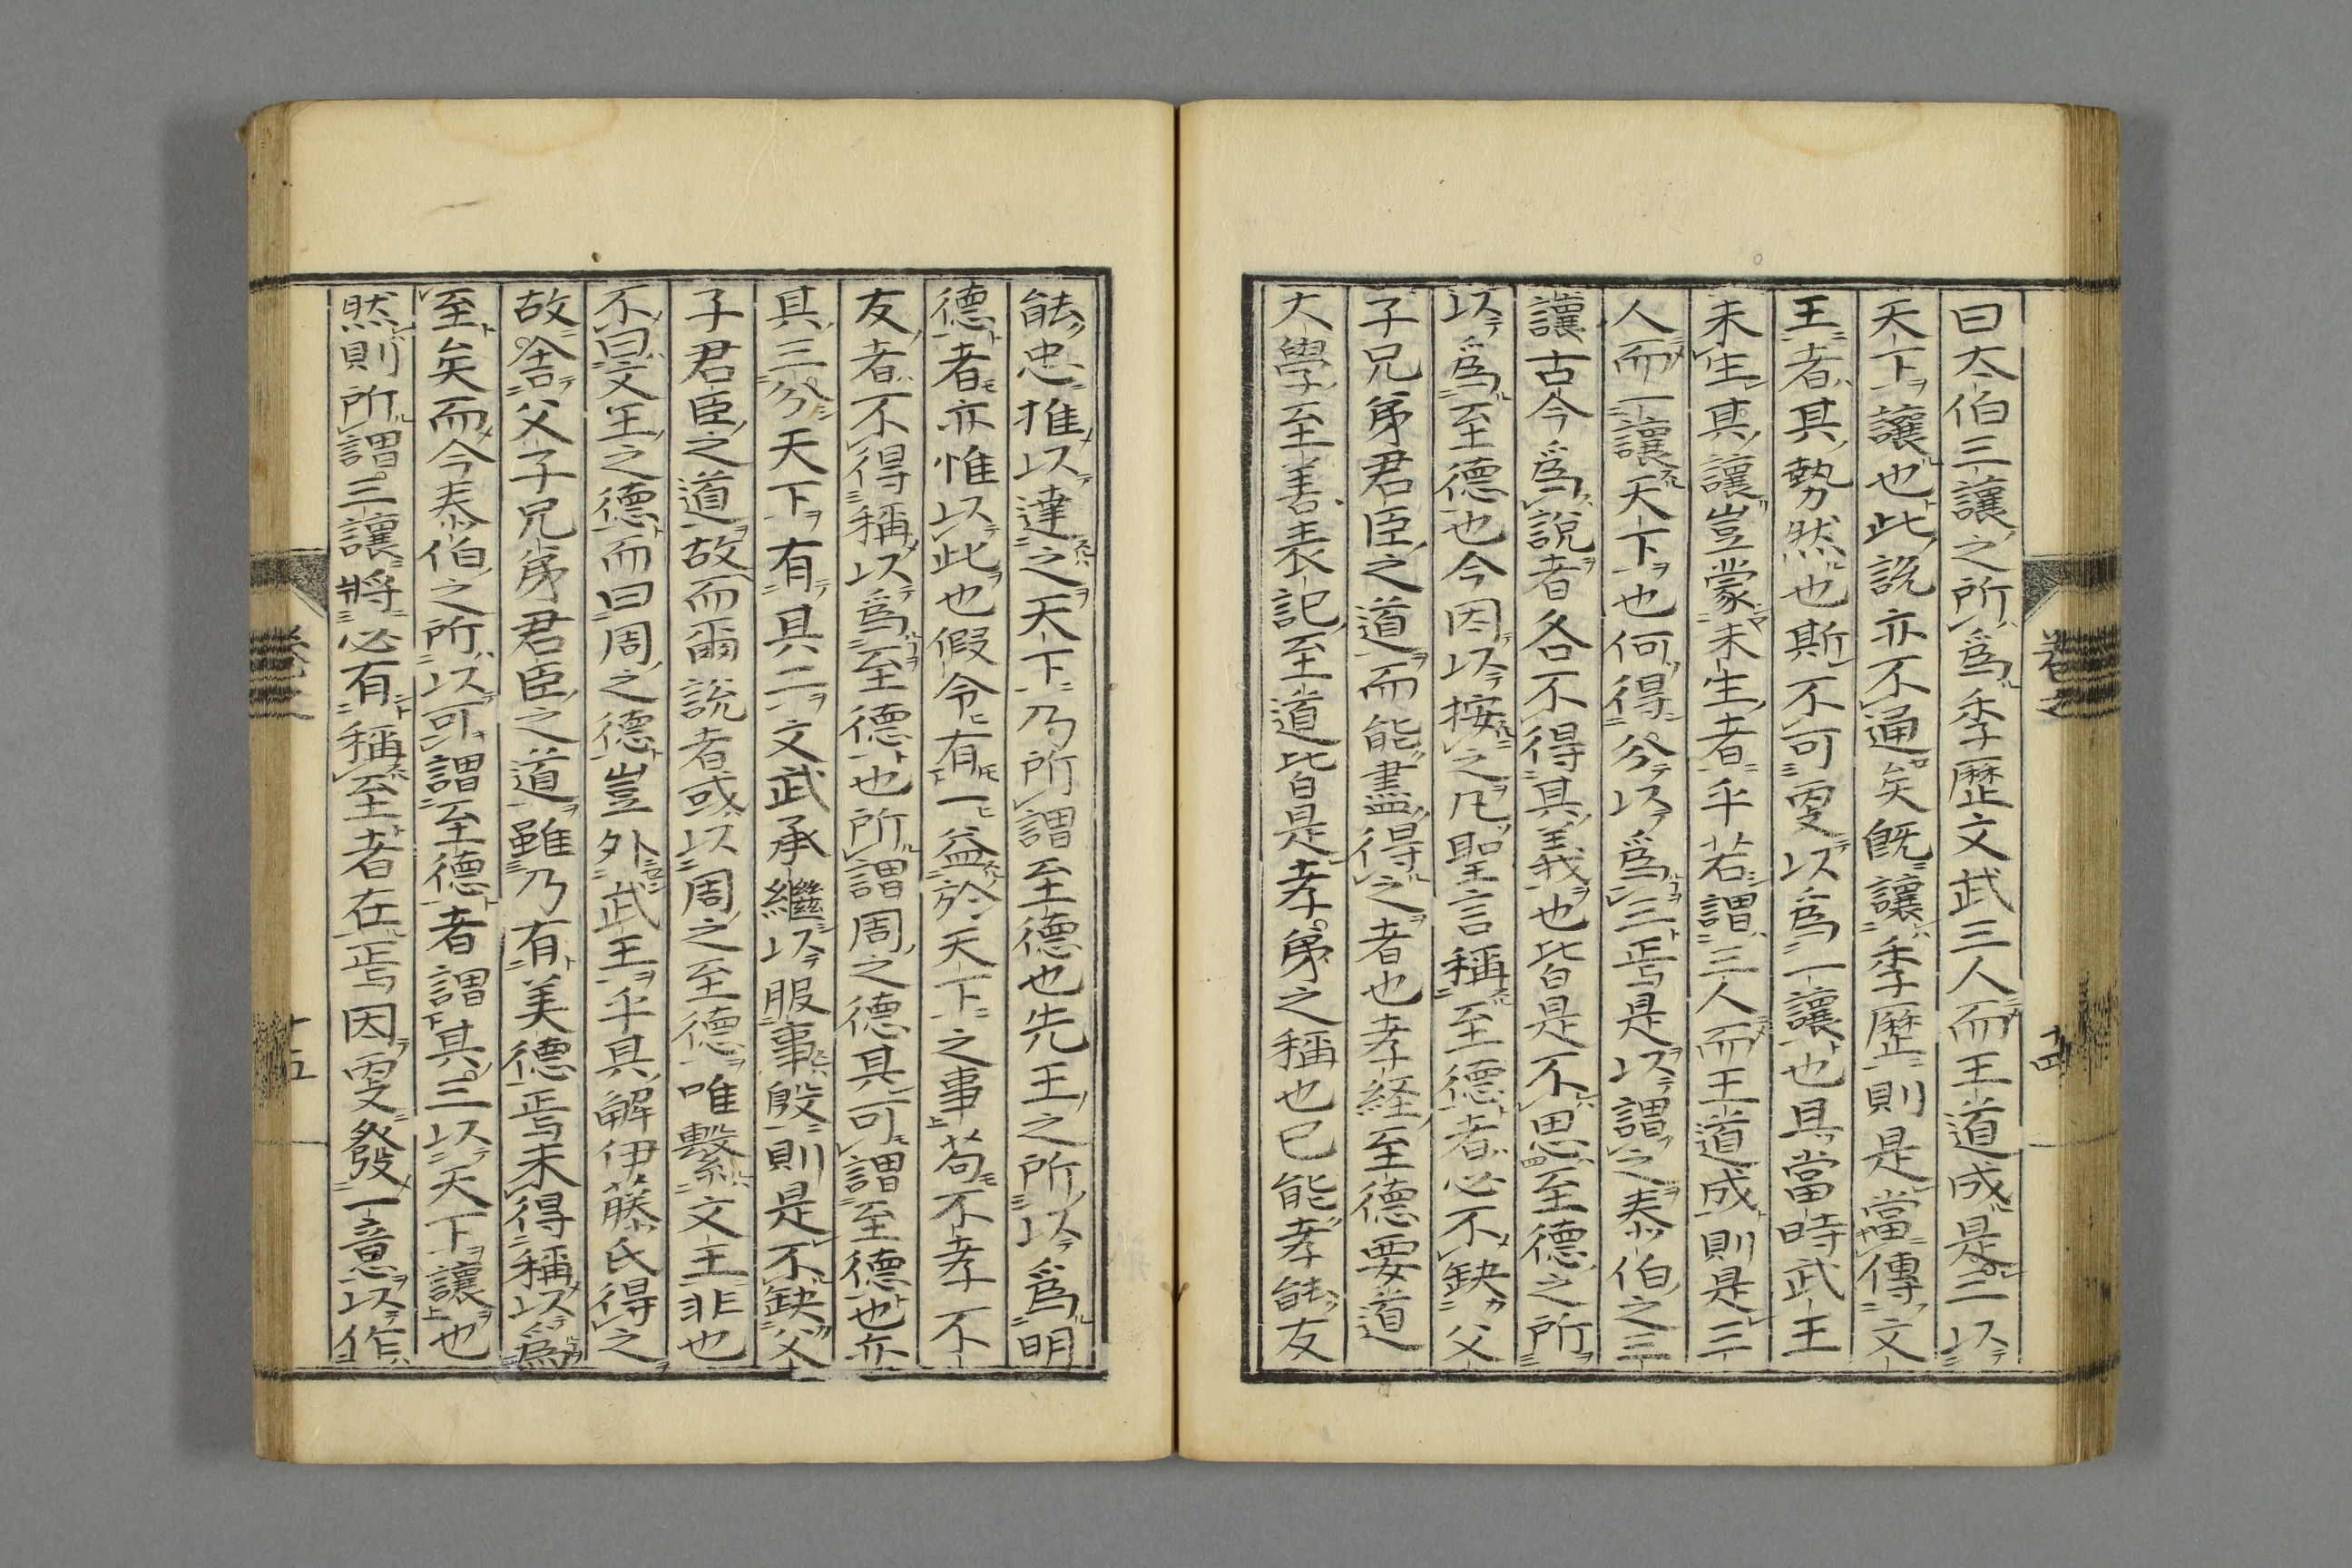 曰太伯三讓之所爲季歴文武三人而王道成是三以
天下讓也此說亦不通矣既讓季歴則是當傳文
王者其勢然也斯不可更以爲一讓也且當時武王
未生其讓豈蒙未生者乎若謂三人而王道成則是三
人而一讓天下也何得分以爲三焉是以謂之泰伯之三
讓古今爲說者各不得其義也皆是不思至德之所
以爲至德也今因以按之凡聖言稱至德者必不缺父
子兄弟君臣之道而能盡得之者也孝經至德要道
大學至善表記至道皆是孝弟之稱也已能孝能友
能忠推以達之天下乃所謂至德也先王之所以爲明
德者亦惟以此也假令有一益於天下之事苟不孝不
友者不得稱以爲至德也所謂周之德其可謂至德也亦
其三分天下有其二文武承繼以服事殷則是不缺父
子君臣之道故而爾說者或以周之至德唯繫文王非也
不曰文王之德而曰周之德豈外武王乎其解伊藤氏得之
故舍父子兄弟君臣之道雖乃有美德焉未得稱以爲
至矣而今泰伯之所以可謂至德者謂其三以天下讓也
然則所謂三讓將必有稱至者在焉因更發一意以作
卷之
十四
卷之
十五